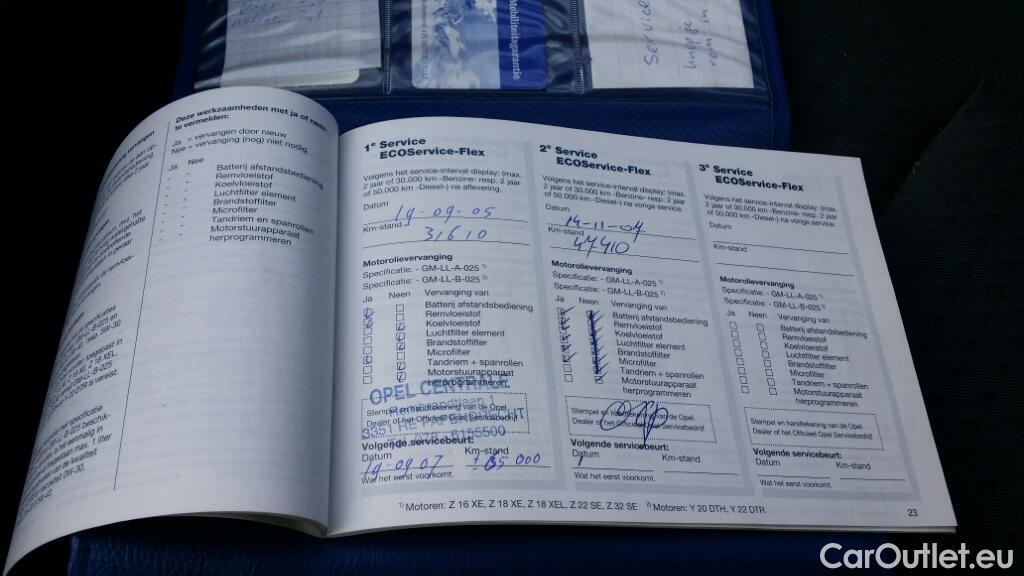 Mobiliteitsgarantie
Service
Deze werkzaamheden met ja of neen
te vermelden:
Ja = vervangen door nieuw
Nee = vervanging (nog) niet nodig
Ja Nee
Batterij afstandsbediening
Remvloeistof
Koelvloeistof
Luchtfilter element
Brandstoffilter
Microfilter
Tandriem en spanrollen
Motorstuurapparaat
herprogrammeren
1e Service
ECOService-Flex
Volgens het service-interval display: (max.
2 jaar of 30.000 km -Benzine- resp. 2 jaar
of 50.000 km -Diesel-) na aflevering.
Datum
19-09-05
Km-stand
31610
Motorolievervanging
Specificatie: - GM-LL-A-025 1)
Specificatie: - GM-LL-B-025 2)
Ja Neen Vervanging van
Batterij afstandsbediening
Remvloeistof
Koelvloeistof
Luchtfilter element
Brandstoffilter
Microfilter
Tandriem + spanrollen
Motorstuurapparaat
herprogrammeren
OPEL CENTRALE
Stempel en handtekening van de Opel
Dealer of het Officieel Opel Servicebedrijf
Volgende servicebeurt:
Datum Km-stand
19-09-07 65000
Wat het eerst voorkomt.
2e Service
ECOService-Flex
Volgens het service-interval display: (max.
2 jaar of 30.000 km -Benzine- resp. 2 jaar
of 50.000 km -Diesel-) na vorige service.
Datum
14-11-07
Km-stand
47410
Motorolievervanging
Specificatie: - GM-LL-A-025 1)
Specificatie: - GM-LL-B-025 2)
Ja Neen Vervanging van
Batterij afstandsbediening
Remvloeistof
Koelvloeistof
Luchtfilter element
Brandstoffilter
Microfilter
Tandriem + spanrollen
Motorstuurapparaat
herprogrammeren
Stempel en handtekening van de Opel
Dealer of het Officieel Opel Servicebedrijf
Volgende servicebeurt:
Datum Km-stand
Wat het eerst voorkomt.
3e Service
ECOService-Flex
Volgens het service-interval display: (max.
2 jaar of 30.000 km -Benzine- resp. 2 jaar
of 50.000 km -Diesel-) na vorige service.
Datum
Km-stand
Motorolievervanging
Specificatie: - GM-LL-A-025 1)
Specificatie: - GM-LL-B-025 2)
Ja Neen Vervanging van
Batterij afstandsbediening
Remvloeistof
Koelvloeistof
Luchtfilter element
Brandstoffilter
Microfilter
Tandriem + spanrollen
Motorstuurapparaat
herprogrammeren
Stempel en handtekening van de Opel
Dealer of het Officieel Opel Servicebedrijf
Volgende servicebeurt:
Datum Km-stand
Wat het eerst voorkomt.
1) Motoren: Z 16 XE, Z 18 XE, Z 18 XEL, Z 22 SE, Z 32 SE 2) Motoren: Y 20 DTH, Y 22 DTR
23
CarOutlet.eu